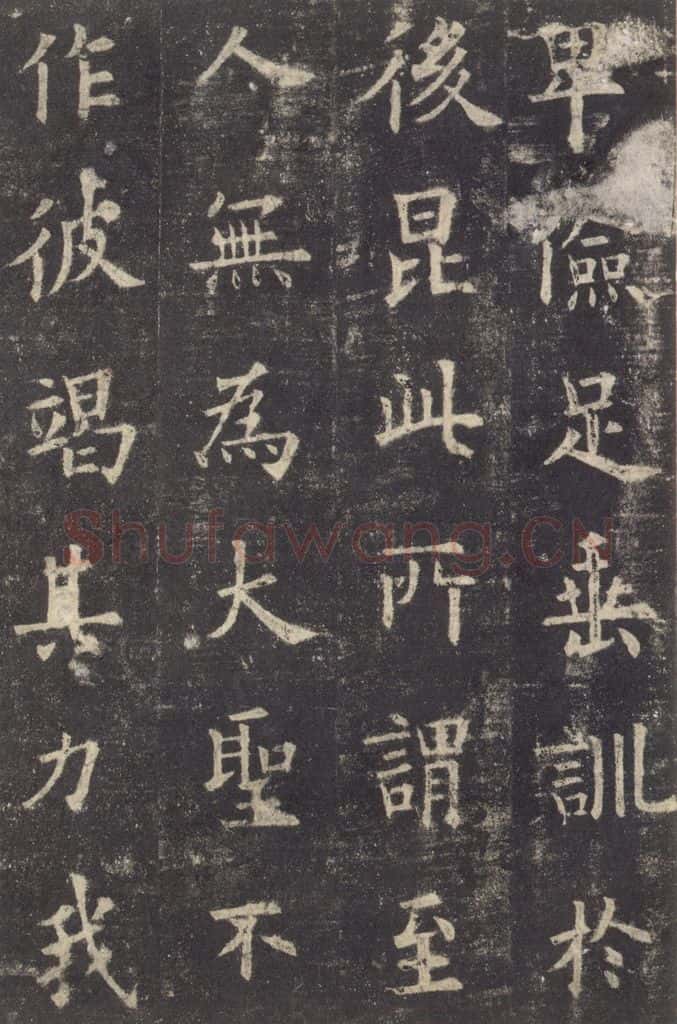 卑儉足垂訓於
後昆此所謂至
人無為大聖不
作彼竭其力我
Shufawang.CN